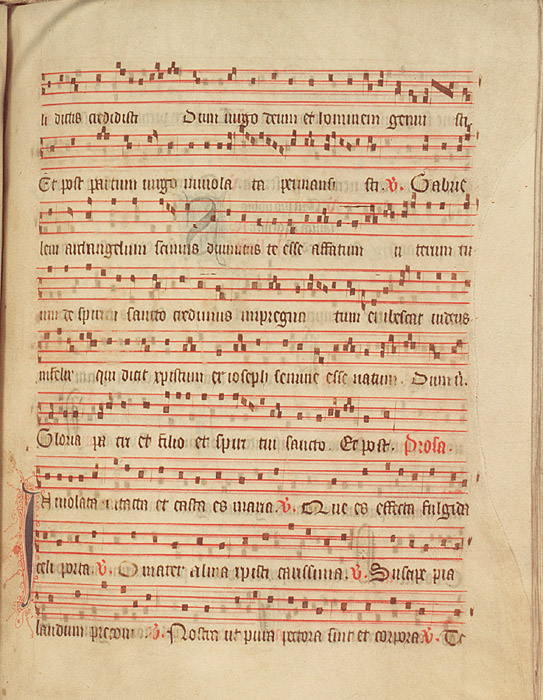 li dictis credidisti Dum virgo deum et hominem genui sti
Et post partum virgo inviola ta permansi sti. V. Gabrie
lem archangelum scimus divinitus te esse affatum u terum tu
um de spiritu sancto credimus impregna tum erubescat iudeus
infelix qui dicit xpistum ex ioseph semine esse natum. Dum v.
Gloria pa tri et filio et spiri tui sancto. Et post. Prosa.
Inviolata intacta et casta es maria. V. Que es effecta fulgida
celi porta. V. O mater alma xpisti carissima. V. Suscipe pia
laudum V. Nostra ut pura pectora sint et corpora V. Te